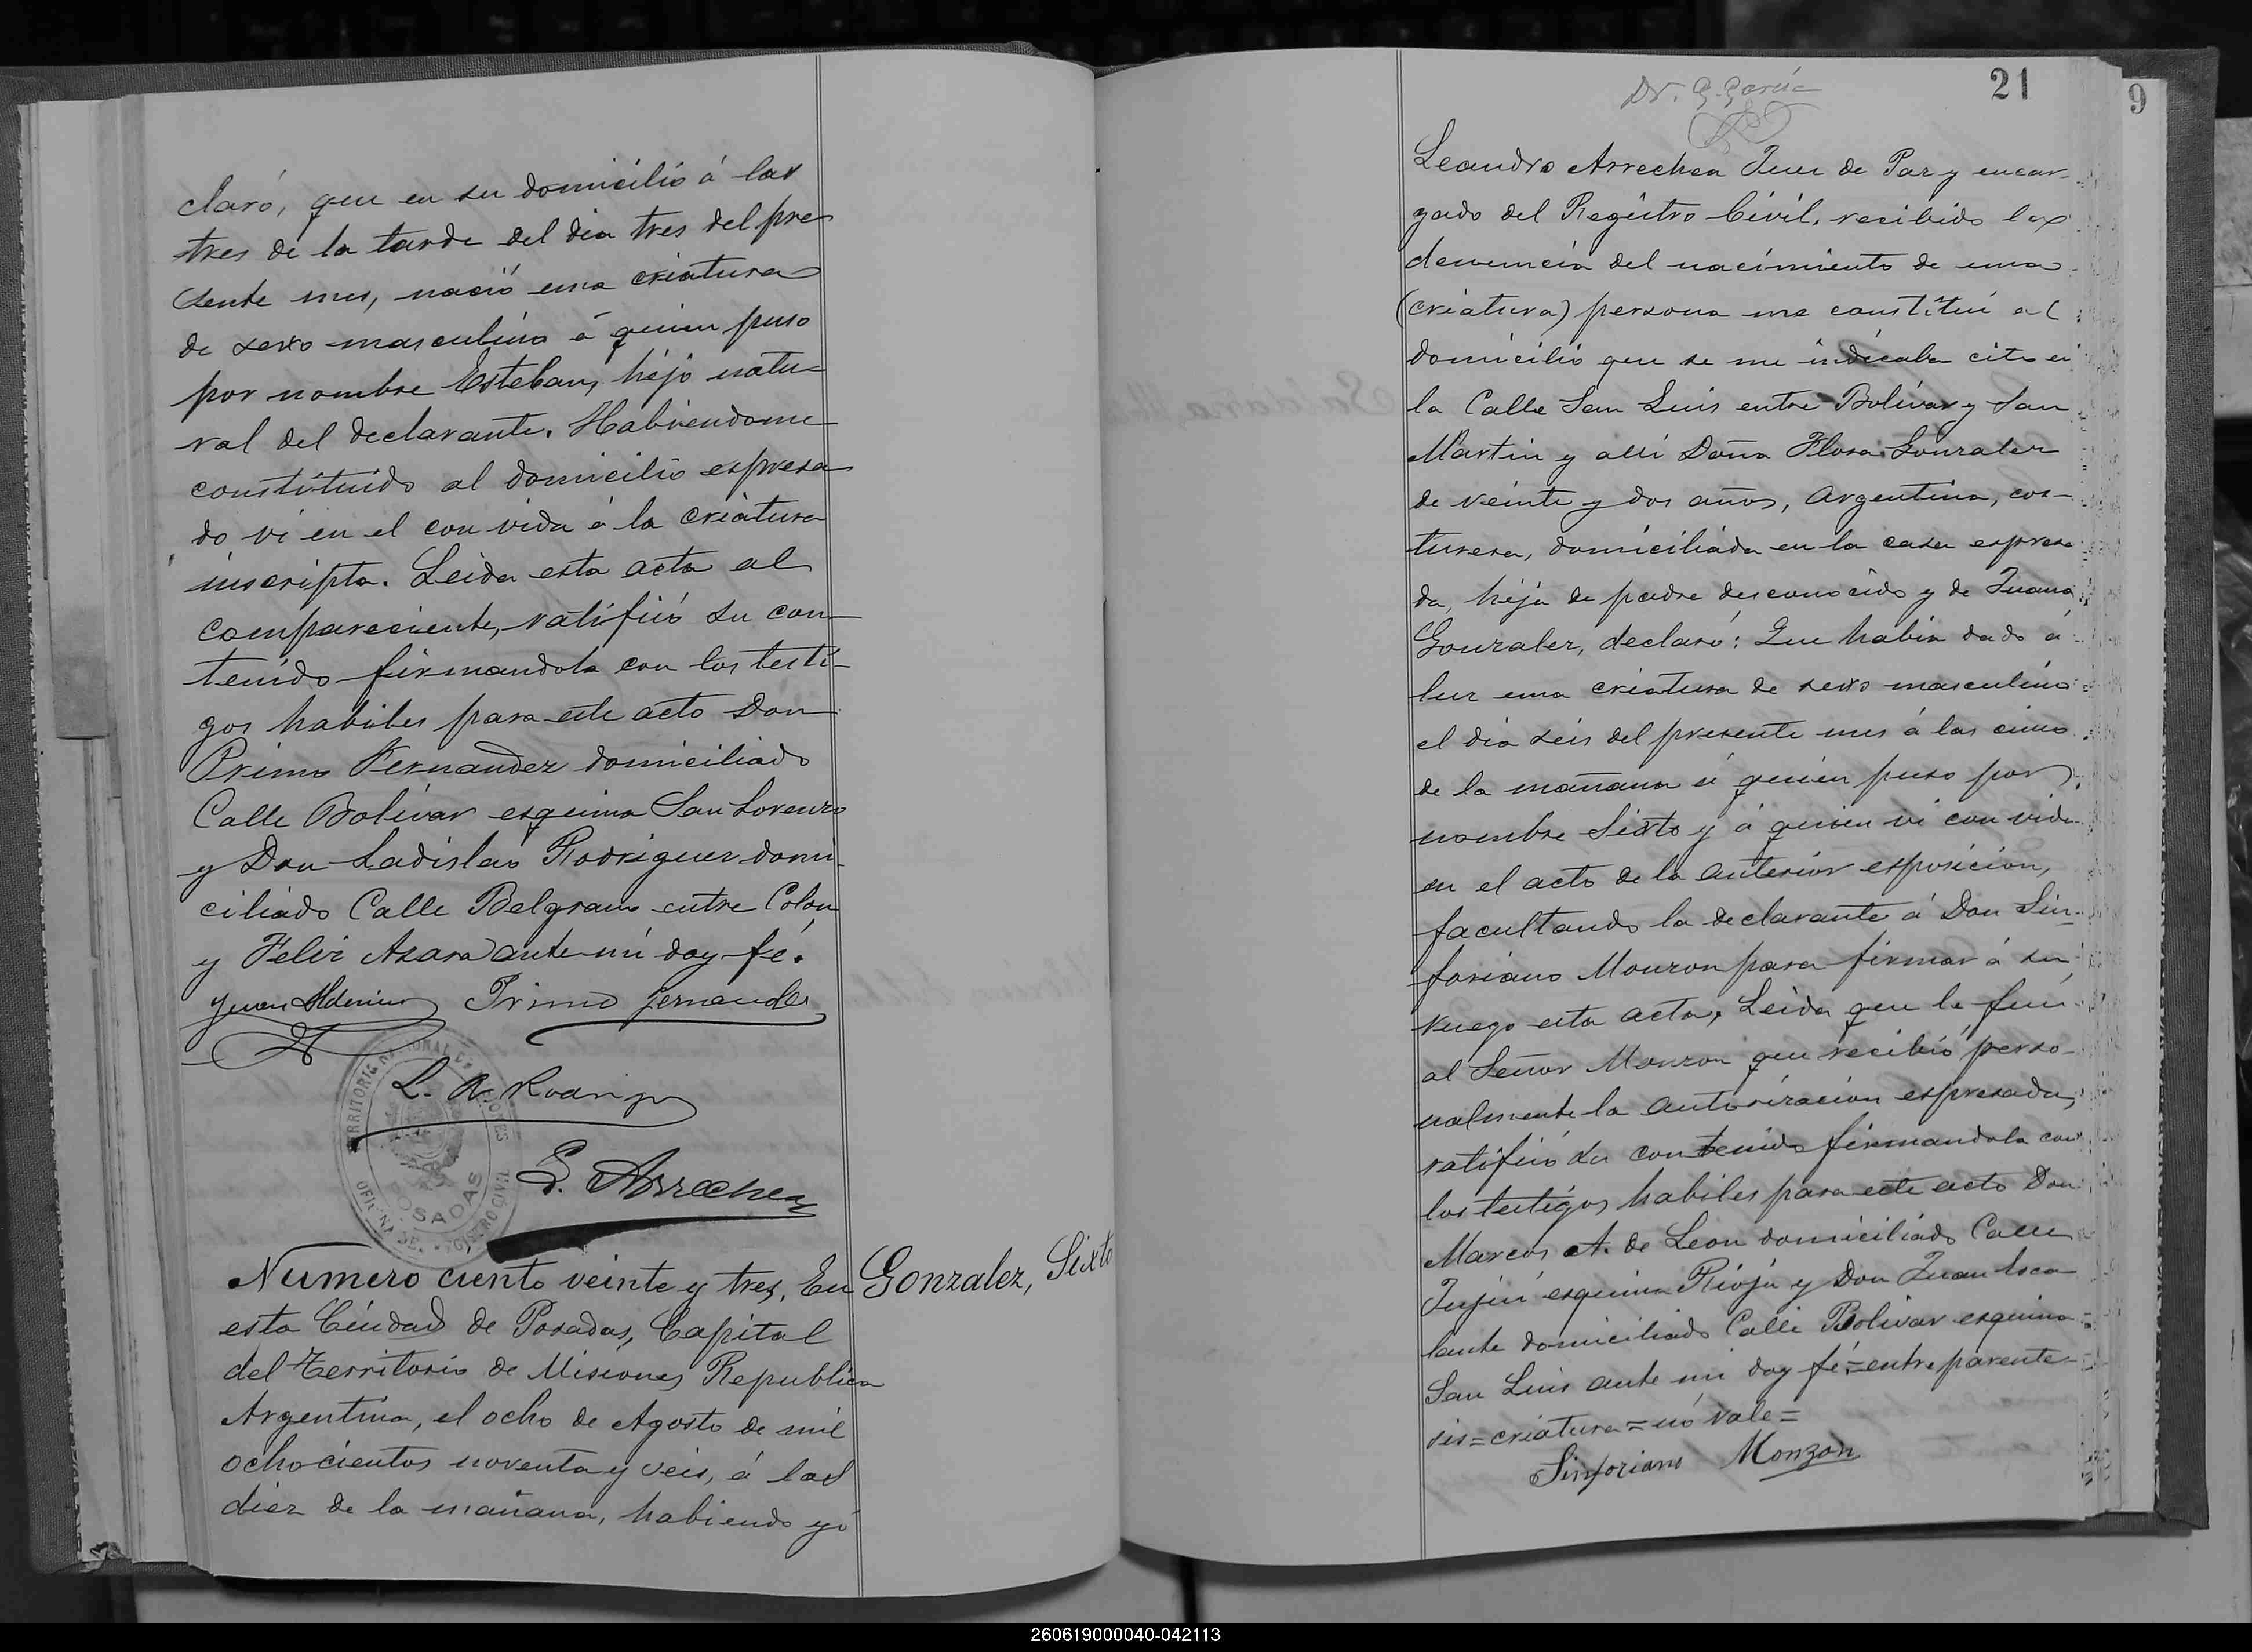 claró, que en su domicilio á las
tres de la tarde del dia tres del pre
sente mes, nació una criatura
de sexo masculino á quien puso
por nombre Esteban, hijo natu-
ral del declarante. Habiendome
constituido al domicilio espresa
do ví en el con vida á la criatura
inscripta. Leida esta acta al
compareciente, ratificó su con-
tenido firmandola con los testi-
gos habiles para este acto Don
Primo Fernandez domiciliado
Calle Bolívar esquina San Lorenzo
y Don Ladislao Rodriguez domi-
ciliado Calle Belgrano entre Colon
y Felix Azara ante mí doy fé.
Juan Primo Fernandez
L. R.
L. Arrechea
TERRITORIO NACIONAL DE MISIONES
POSADAS
OFICINA DE REGISTRO CIVIL
Numero ciento veinte y tres, En
Gonzalez, Sixto
esta Ciudad de Posadas, Capital
del Territorio de Misiones Republica
Argentina, el ocho de Agosto de mil
ochocientos noventa y seis, á las
diez de la mañana, habiendo yó
Dr. G. García
21
9
Leandro Arrechea Juez de Paz y encar-
gado del Registro Civil, recibido la
denuncia del nacimiento de una
(criatura) persona me constituí al
domicilio que se me indicaba cito en
la Calle San Luis entre Bolívar y San
Martin y allí Doña Flora Gonzalez
de veinte y dos años, Argentina, cos-
turera, domiciliada en la casa espresa
da, hija de padre desconocido y de Juana
Gonzalez, declaró: Que habia dado á
luz una criatura de sexo masculino
el dia seis del presente mes á las cinco
de la mañana á quien puso por
nombre Sixto y á quien ví con vida
en el acto de la anterior esposicion,
facultando la declarante á Don Sin-
foriano Monzon para firmar á su
ruego esta acta, Leida que le fué
al Señor Monzon que recibió perso-
nalmente la autorizacion espresada,
ratificó su contenido firmandola con
los testigos habiles para este acto Don
Marcos A. de Leon domiciliado Calle
Jujuí esquina Rioja y Don Juan Esca
lante domiciliado Calle Bolivar esquina
San Luis ante mi doy fé=entre parente-
sis=criatura=nó vale=
Sinforiano Monzon
260619000040-042113